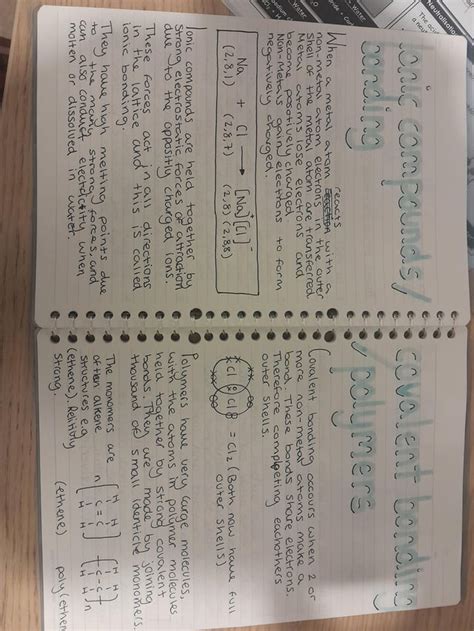 Ionic compounds/
bonding
When a metal atom reacts with a
non-metal atom, electrons in the outer
shell of the metal atom are transferred
Metal atoms lose electrons and
become positively charged
Non-Metals gain electrons to form
negatively charged.
Na + Cl → [Na]⁺[Cl]⁻
(2,8,1) (2,8,7) (2,8) (2,8,8)
Ionic compounds are held together by
strong electrostatic forces of attraction
due to the oppositly charged ions.
These forces act in all directions
in the lattice and this is called
ionic bonding.
They have high melting points due
to the many strong forces, and
can also conduct electricity when
molten or dissolved in water.
covalent bonding
/polymers
Covalent bonding occurs when 2 or
more non-metal atoms make a
bond. These bonds share electrons.
Therefore completing eachothers
outer shells.
Cl Cl = Cl2 (Both now have full
outer shells)
Polymers have very large molecules,
with the atoms in polymer molecules
held together by strong covalent
bonds. They are made by joining
thousand of small identicle monomers.
The monomers are
often alkene
structures eg
(ethene). Relitivly
strong.
n
H H
C = C
H H
(ethene)
H H
C - C
H H
n
poly(ethen